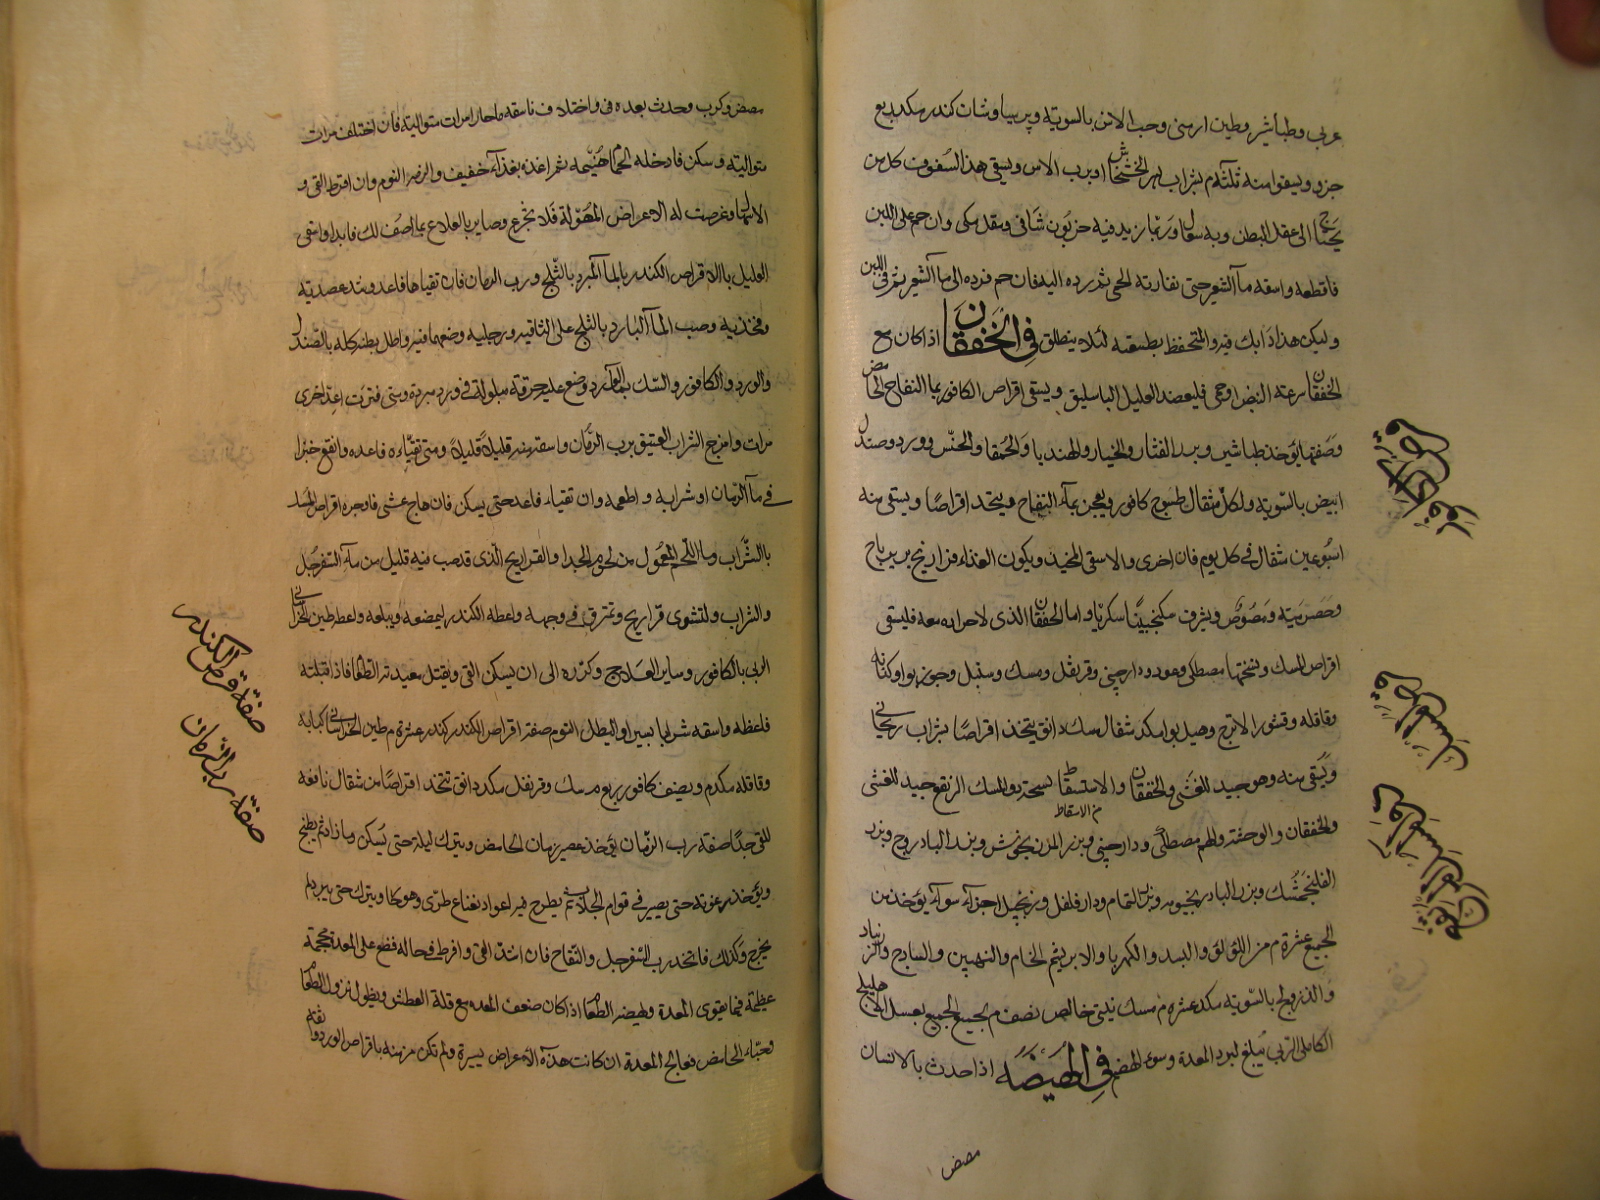 عربى وطباشير وطين ارمنى وحب الآس بالسوية وپرسياوشان كندر مكد ربع
جزو ويسقوا منه ثلثة م بشراب بزر الخشخاش او برب الآس ويسقى هذا السفوف كل من
يحتاج الى عقل البطن وبه سعال وربما زيد فيه خرنوب شامى ومقل مكى وان حم على اللبن
فاقطعه واسقه ماء الشعير حتى تفارقه الحمى ثم رده اليه فان حم فرده الى ماء الشعير ثم الى اللبن
وليكن هذا دابك فيه والتحفظ بطبيعته لئلا ينطلق في الخفقان اذا كان مع
الخفقان سرعة النبض او حمى فليفصد العليل الباسليق ويسقى اقراص الكافور بماء التفاح الحامض
وصفتها يؤخذ طباشير وبزر القثاء والخيار والهندبا والحمقا والخس وورد وصندل
ابيض بالسوية ولكل مثقال طسوج كافور ويعجن بماء التفاح ويتخذ اقراصا ويستقى منه
اسبوعين مثقال في كل يوم فان اجزى والا سقى المخيض ويكون الغذاء فراريج زيرباج
وحصرمية ومصوص ويشرب سكنجبينا سكريا واما الخفقان الذى لا حرارة معه فليسقى
اقراص المسك ونسختها مصطكى وعود ودارچينى وقرنفل ومسك وسنبل وجوزبوا وكبابه
وقاقله وقشور الاترج وهيل بوا مكد مثقال مسك دانق يتخذ اقراصا بشراب ريحانى
ويسقى منه وهو جيد للغشى والخفقان والاستسقاط نسخة دواء المسك النافع جيد للغشى
م الاسقاط
والخفقان والوحشة والهم مصطكى ودارچينى وبزر المرزنجوش وبزر البادروج وبزر
الفلنجمشك وبزر البادرنجبويه وبزر النمام ودار فلفل وزنجبيل اجزاء سواء يؤخذ من
الجميع عشرة م من اللؤلؤ والبسد والكهربا والابريشم الخام والبهمنين والساذج والزرنباد
والدرونج بالسوية مكد عشرة م مسك تبتى خالص نصف م يجمع الجميع بعسل الاهليلج
الكابلى المربى يبلغ لبرد المعدة وسوء الهضم في الهيضه اذا حدث بالانسان
مصص
مصص وكرب وحدث بعده قى واختلاف فاسقه ماء حارا مرات متوالية فان اختلف مرات
متوالية وسكن فادخله الحمام هنيهة ثم اغذه بغذاء خفيف والزمه النوم وان افرط القى و
الاسهال وعرضت له الاعراض المهولة فلا تجزع وصابر بالعلاج بما اصف لك فابدا واسقى
العليل بالاقراص الكندر بالماء المبرد بالثلج ورب الرمان فان تقياها فاعد وشد عضديه
وفخذيه وصب الماء البارد بالثلج على اطرافه ورجليه وضعهما فيه واطل بطنه كله بالصندل
والورد والكافور والسك بماء ورد وضع عليه خرقة مبلولة في ورد مبردة ومتى فترت اعد اخرى
مرات وامزج الشراب العتيق برب الرمان واسقه منه قليلا قليلا ومتى تقياه فاعده وانقع خبزا
في ماء الرمان او شرابه واطعمه وان تقياء فاعد حتى يسكن فان هاج غشى فاوجره اقراص المسك
بالشراب وماء اللحم المعمول من لحوم الجدا والفراريج الذى قد صب فيه قليل من ماء السفرجل
والشراب ولتشوى فراريج وتمزق في وجهه واعطه الكندر ليمضغه ويبلعه واعط طين الخراسانى
المربى بالكافور وساير العلاج وكرره الى ان يسكن القى ويقبل معيدته الطعام فاذا قبلته
فلعظه واسقه شرابا يسيرا واليطل النوم صفة اقراص الكندر كندر عشرة م طين الخراسانى كبابه
وقاقله مكد م ونصف كافور ربع م مسك وقرنفل مكد دانق تتخد اقراصا من مثقال نافعه
للقى جدا صفة رب الرمان يؤخذ عصير رمان الحامض ويترك ليلة حتى يسكن وما زاد ثم يطبخ
ويؤخذ رغوته حتى يصير في قوام الجلاب ثم يطرح فيه اعواد نعناع طرى وهو كما ويترك حتى يبرد ثم
يخرج وكذلك فاتخذ رب السفرجل والتفاح فان اشتد القى وافرط فحاله فضع على المعدة محجمة
عظيمة فيما يقوى المعدة ولهضم الطعام اذا كان ضعف المعده مع قلة العطش وبطول نزول الطعام
وجشاء الحامض فعالج المعدة ان كانت هذه الاعراض يسيرة ولم تكن مزمنه باقراص الورد
صفة قرص الكندر
صفة رب الرمان